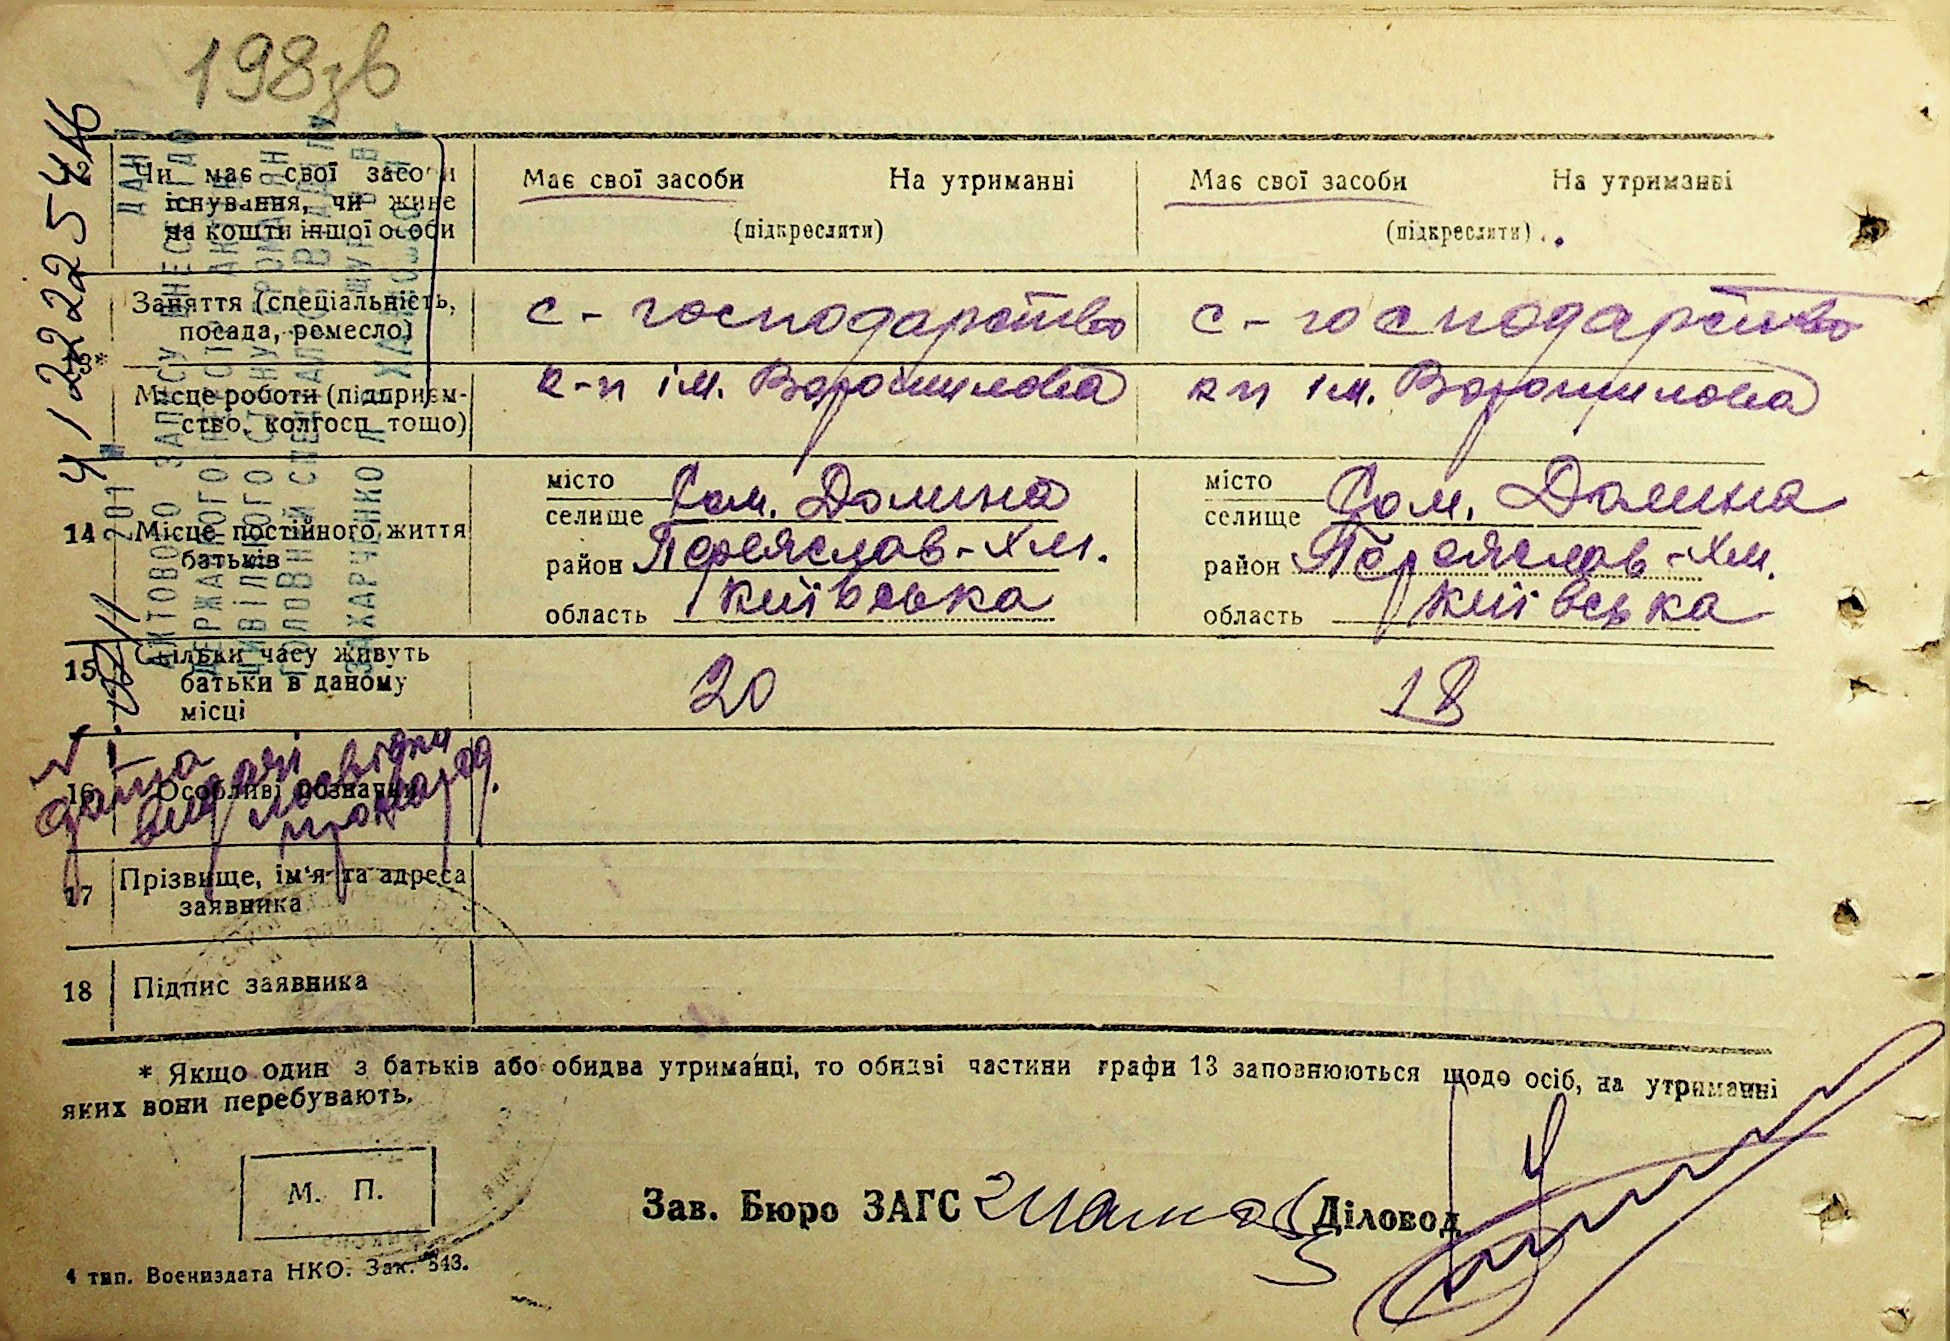 198зв
4122225416
Чи має свої засоби
існування, чи живе
на кошти іншої особи
Має свої засоби На утриманні
(підкреслити)
Має свої засоби На утриманні
(підкреслити)
13*
Заняття (спеціальність,
посада, ремесло)
с - господарство
с - господарство
Місце роботи (підприєм-
ство, колгосп тощо)
к-п ім. Ворошилова
кп ім. Ворошилова
14 Місце постійного життя
батьків
місто
селище Сом. Долина
район Переяслав-Хм.
область Київська
місто
селище Сом. Долина
район Переяслав-Хм.
область Київська
15 Скільки часу живуть
батьки в даному
місці
20
18
16 Особливі познатки
дата
видачі посвідки
17 Прізвище, ім'я та адреса
заявника
18 Підпис заявника
* Якщо один з батьків або обидва утриманці, то обидві частини графи 13 заповнюються щодо осіб, на утриманні
яких вони перебувають.
М. П.
Зав. Бюро ЗАГС
Діловод
4 тип. Воениздата НКО. Зак. 543.
201
АКТОВОГО ЗАПИСУ ВНЕСЕНО ДО
ДЕРЖАВНОГО РЕЄСТРУ АКТІВ
ЦИВІЛЬНОГО СТАНУ ГРОМАДЯН
ГОЛОВНИЙ СПЕЦІАЛІСТ ВІДДІЛУ
ЗАХАРЧЕНКО